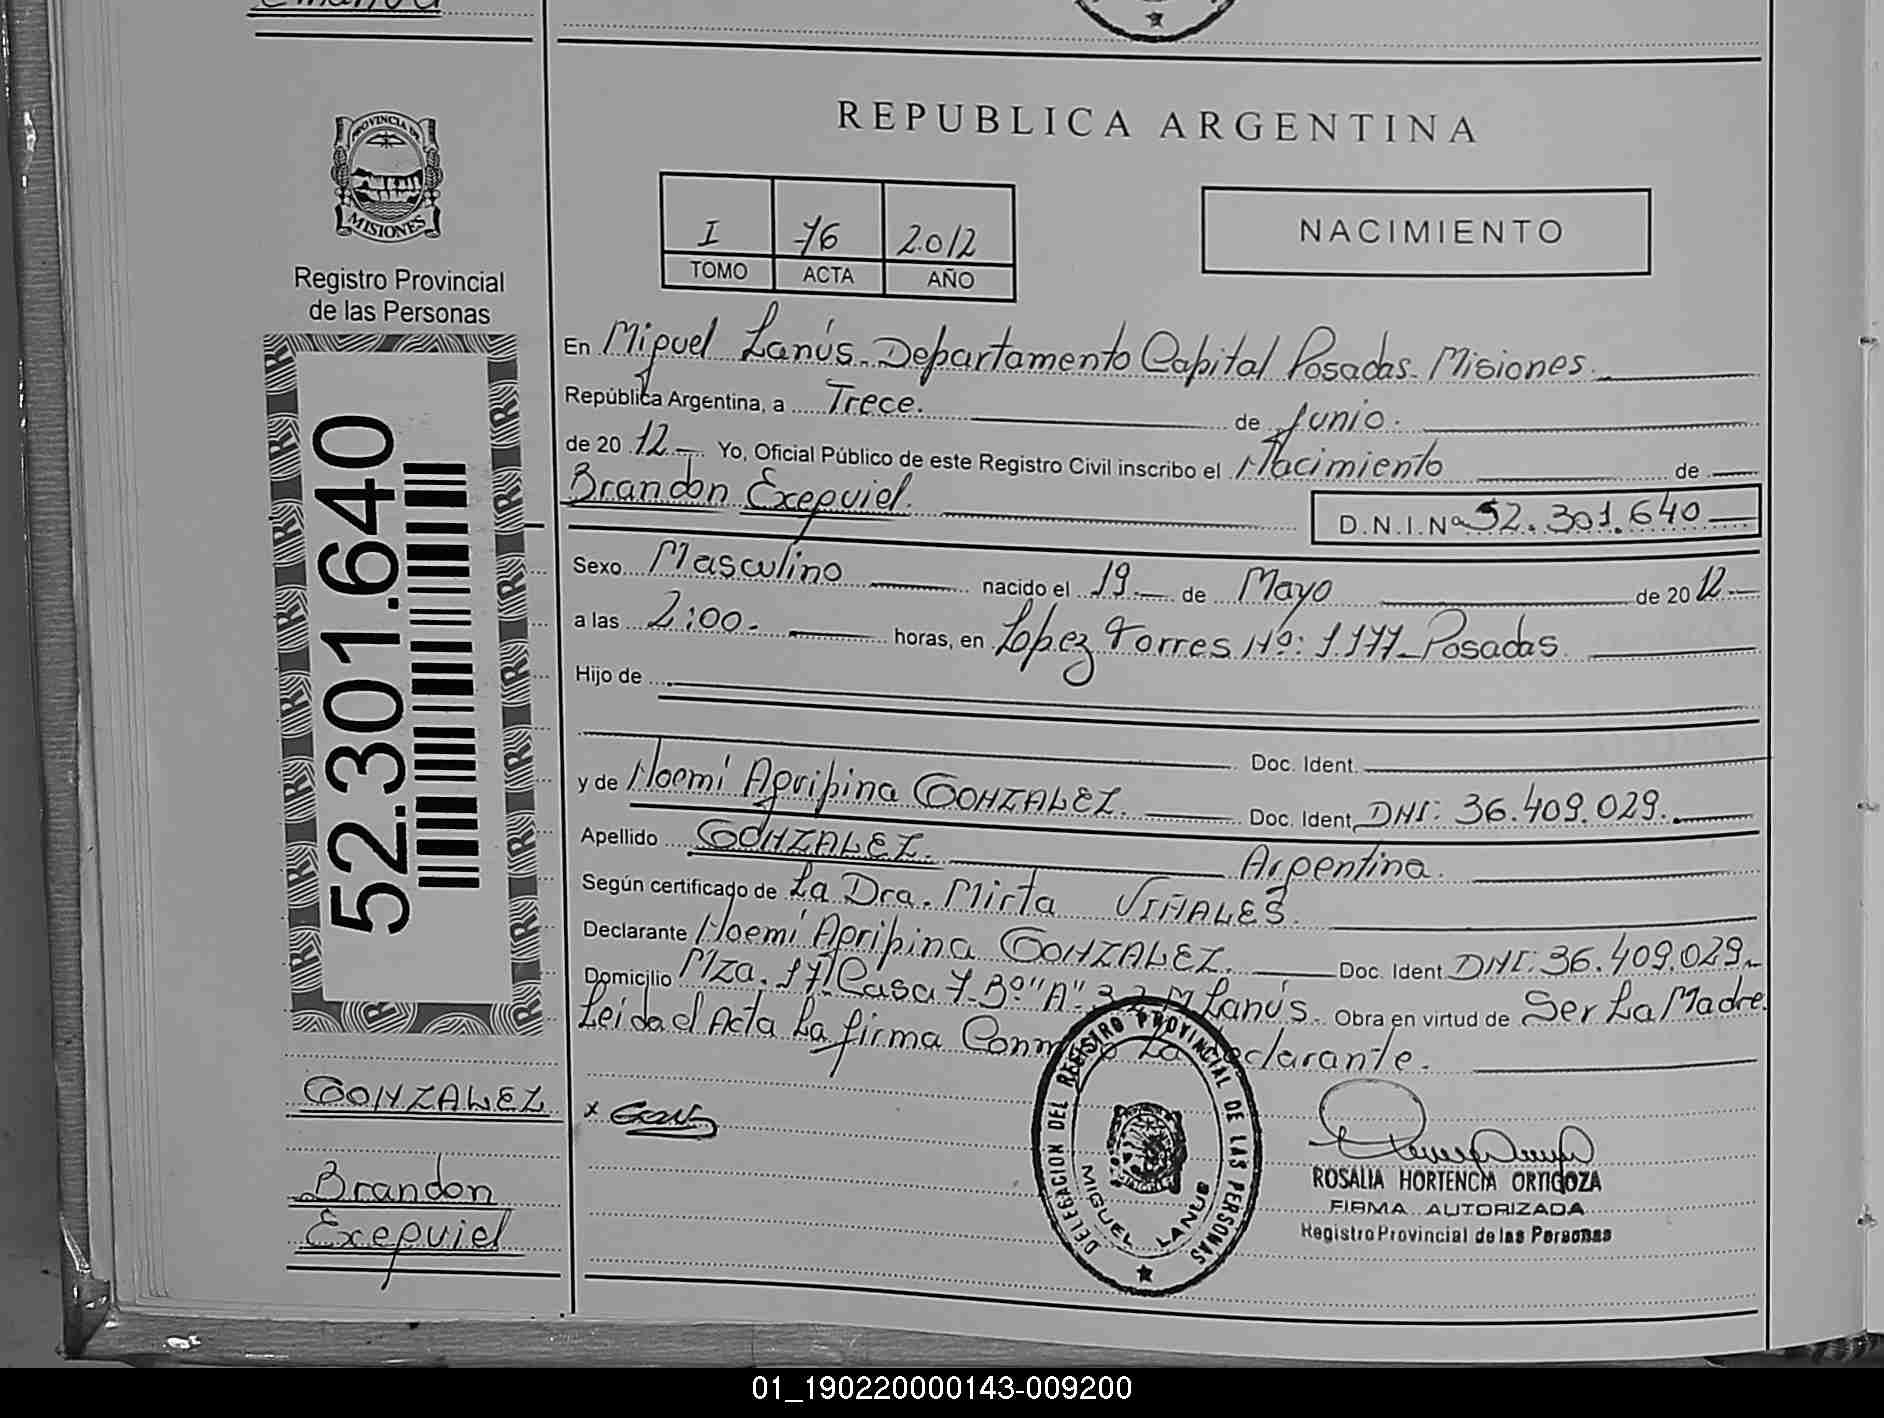 REPUBLICA ARGENTINA
PROVINCIA DE
MISIONES
Registro Provincial
de las Personas
I 76 2012
TOMO ACTA AÑO
NACIMIENTO
52.301.640
En Miguel Lanús. Departamento Capital Posadas. Misiones.
República Argentina, a Trece. de Junio.
de 20 12 Yo, Oficial Público de este Registro Civil inscribo el Nacimiento de
Brandon Exequiel. D.N.I.Nº 52.301.640
Sexo Masculino nacido el 19. de Mayo de 20 12
a las 2:00. horas, en Lopez Torres Nº: 1.177 Posadas
Hijo de
Doc. Ident.
y de Noemí Agripina GONZALEZ. Doc. Ident. DNI: 36.409.029.
Apellido GONZALEZ. Argentina.
Según certificado de La Dra. Mirta VIÑALES.
Declarante Noemí Agripina GONZALEZ. Doc. Ident. DNI: 36.409.029
Domicilio Mza. 17 Casa 7. Bº "A" 3.2 M. Lanús. Obra en virtud de Ser La Madre.
Leida el Acta La firma Conmigo La Declarante.
GONZALEZ
Brandon
Exequiel
x
DELEGACION DEL REGISTRO PROVINCIAL DE LAS PERSONAS
MIGUEL LANUS
ROSALIA HORTENCIA ORTIGOZA
FIRMA AUTORIZADA
Registro Provincial de las Personas
01_190220000143-009200